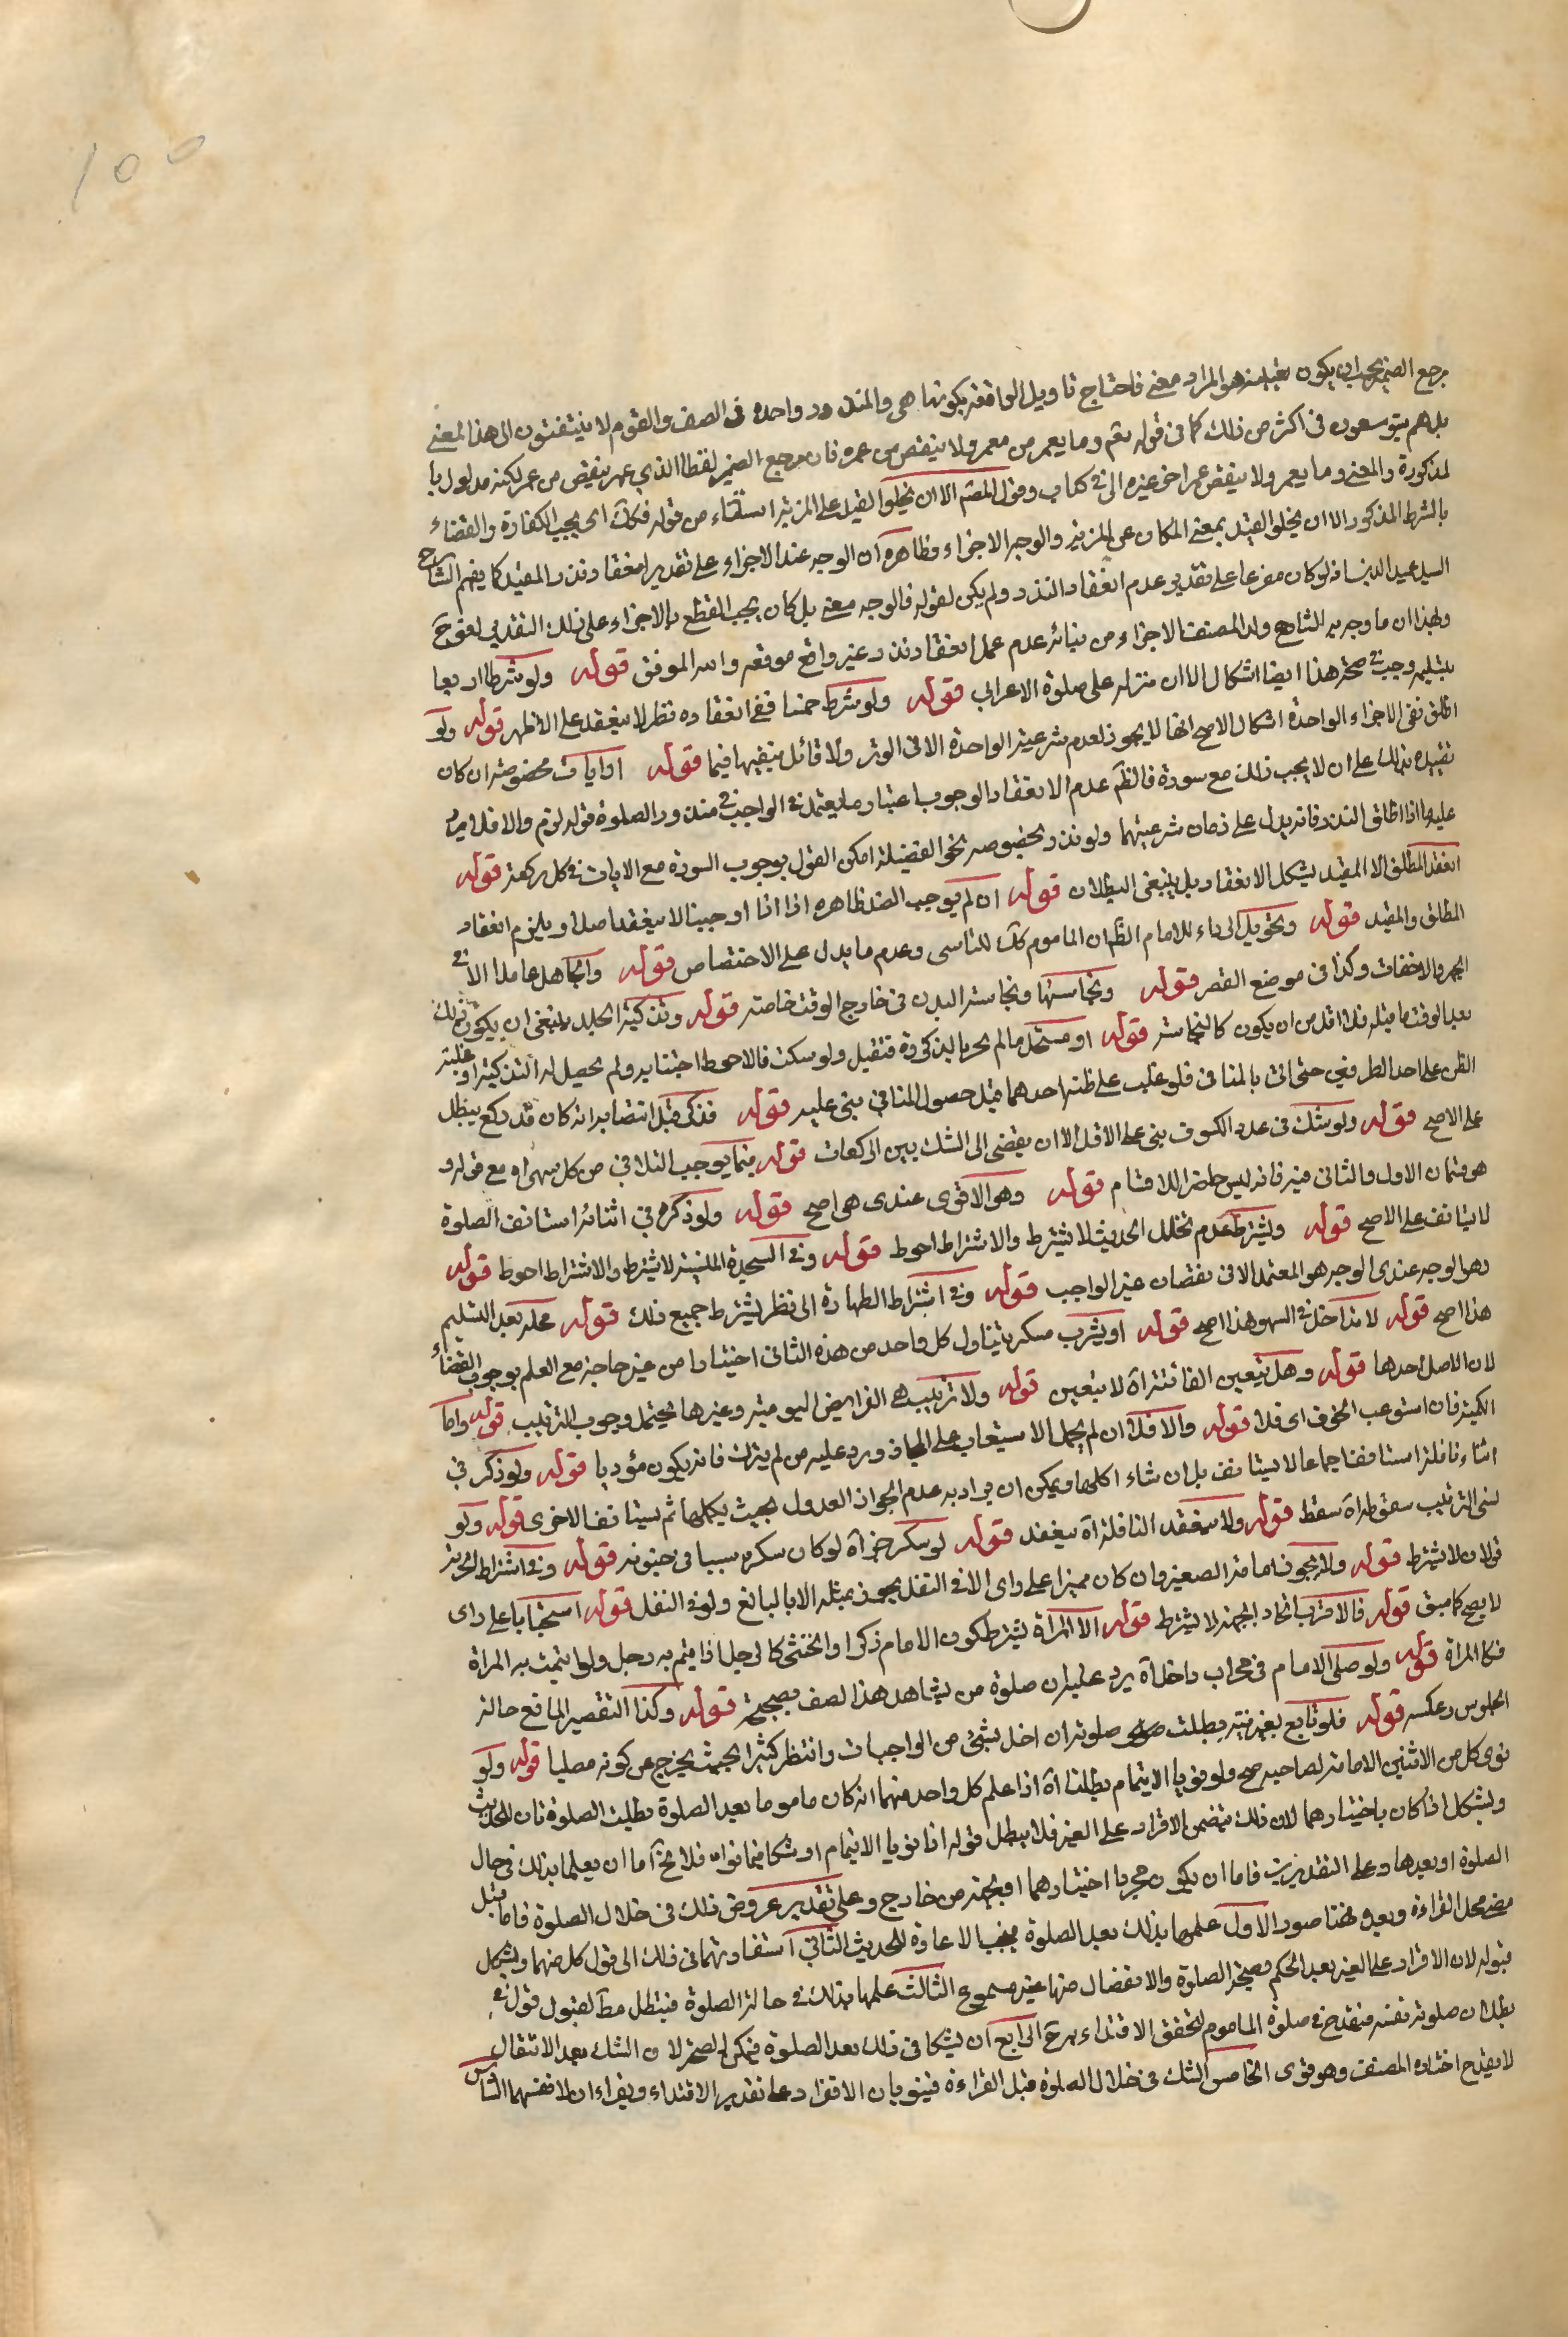 100
مرجع الضمير يجب ان يكون بعينه هو المراد معنى فاحتاج تاويل الواقعة بكونها هى والمنذور واحدة فى الصف والقوم لا يلتفتون الى هذا المعنى
بل هم يتوسعون فى اكثر من ذلك كما فى قوله تعم وما يعمر من معمر ولا ينقص من عمره فان مرجع الضمير لفظا الذي عمر ينقص من عمر لكنه مدلول با
لمذكورة والمعنى وما يعمر ولا ينقص عمر اخر غيره الا فى كتاب وقول المصنم الا ان يخلوا القيد على المزية استثناء من قوله فكك اى يجب الكفارة والقضاء
بالشرط المذكور الا ان يخلو القيد بمعنى المكان عن المزية والوجه الاجزاء وظاهره ان الوجه عند الاجزاء على تقدير انعقاد نذر المقيد كما يفهم الشارح
السيد عميد الدين اذ لو كان مفرعا على تقدير عدم انعقاد النذر ولم يكن لقوله فالوجه معنى بل كان يجب القطع بالاجزاء على ذلك التقدير لعق ح
ولهذا ان ما وجه به الشارح ولد المصنف الاجزاء من بنائه عدم عمل انعقاد نذر غير واقع موقعه واسه الموفق قوله ولو شرط اربعا
بتسليمه وجب فى صحة هذا ايضا اشكال الا ان منزله على صلوة الاعرابى قوله ولو شرط خمسا ففى انعقاده نظر لا ينعقد على الاظهر قوله ولو
اطلق نفى اجزاء الواحدة اشكال الاصح انها لا يجوز لعدم شرعية الواحدة الا فى الوتر ولا قائل بتعيينها فيما قوله او ايات مخصوصة ان كان
تقييده بذلك على ان لا يجب ذلك مع سورة فالظ عدم الانعقاد الوجوب اعتبار ما يعتمد فى الواجب فى منذور الصلوة قوله لزم والا فلا لزم
عليه واذا اطلق النذر فانه يدل على زمان شرعيتهما ولو نذر بخصوصه نحو الفضيلة امكن القول بوجوب السورة مع الايات فى كل ركعة قوله
انعقد المطلق الا المقيد يشكل الانعقاد بل ينبغى البطلان قوله ان لم يوجب الضد ظاهره اذا انا اوجبنا لا ينعقد اصلا او يلزم انعقاد
المطلق والمقيد قوله وتحويل الرداء للامام الظ ان الماموم كك للتاسى وعدم ما يدل على الاختصاص قوله والجاهل عامد الا فى
الجهر والاخفات وكذا فى موضع القصر قوله ونجاستها ونجاسة البدن فى خارج الوقت خاصة قوله وتذكية الجلد ينبغى ان يكون ذلك
بعد الوقت ما مثله فلا اقل من ان يكون كالنجاسة قوله او مستحل ما لم يحر بالبذكوة فتقبل ولو سكت فالاحوط اجتنابه ولم يحصل له التذكية او غلبة
الظن على احد الطرفين حتى اتى بالمنافى فلو غلب على ظنه احدهما قبل حصول المنافى بنى عليه قوله فذكر قبل انتصابه انه كان قد ركع يبطل
على الاصح قوله ولو شك فى عدد الكسوف بنى على الاقل الا ان يفضى الى الشك بين الركعات قوله فيما يوجب التلافى من كل سهو اه مع قوله و
هو قسمان الاول والثانى فيه فانه ليس حاضر اللاقسام قوله وهو الاقوى عندى هى اصح قوله ولو ذكره فى اثنائه استانف الصلوة
لا يتانف على الاصح قوله ويشترط عدم تخلل الحدث لا يشترط والاشتراط احوط قوله وفى السجدة المنسية لا يشترط والاشتراط احوط قوله
وهو الوجه عندى الوجه هو المعتمد الا فى نقصان غير الواجب قوله وفى اشتراط الطهارة الى نظر يشترط جميع ذلك قوله محله بعد التسليم
هذا اصح قوله لا تداخل فى السهو هذا اصح قوله او بشرب مسكر يتناول كل واحد من هذه الثانى اختيارا من غير حاجة مع العلم بوجوب القضاء
لان الاصل احدها قوله وهل يتعين الفائتة اه لا يتعين قوله ولا ترتيب هى الفرايض اليومية وغيرها يحتمل وجوب الترتيب قوله واما
الكبيرة فان استوعب الخرف اى فلا قوله والا فكك ان لم يجمل الاستيعاب على المجاز ورد عليه من لم يترك فانه يكون مؤديا قوله ولو ذكر فى
اثناء نافلة استانف اجماعا لا يستانف بل ان شاء اكلها ويمكن ان يراد به عدم الجواز العدول بحيث يكملها ثم يستانف الاخرى قوله ولو
نسى الترتيب سقط طراه سقط قوله ولا ينعقد النافلة اه ينعقد قوله لو سكر جن اه لو كان سكره سببا فى جنونه قوله وفى اشتراط الحرية
قولان لا يشترط قوله ولا يجوز امامة الصغير وان كان مميزا على راى الا فى النفل يجوز بمثله الا بالبالغ ولو فى النفل قوله استحبابا على راى
لا يصح كما سبق قوله فالاقرب اتحاد الجهة لا يشترط قوله الا المراة يشترط كون الامام ذكرا والخنثى كالرجل اذا يتم به رجل ولو ايتمت به المراة
فكالمراة قوله ولو صلى الامام فى محراب داخل اه يرد عليه ان صلوة من يشاهد هذا الصف صحيحة قوله وكذا التقصير المانع حالة
الجلوس وعكسه قوله فلو تابع بغير نية بطلت صلوته ان اخل بشئ من الواجبات وانتظر كثيرا بحيث يخرج عن كونه مصليا قوله ولو
نوى كل من الاثنين الامامة لصاحبه صح ولو نويا الايتمام بطلتا اه اذا علم كل واحد منهما انه كان ماموما بعيد الصلوة بطلت الصلوة فان للحديث
ويشكل اذا كان باختيارهما لان ذلك يتضمن الاقرار على الغير فلا يبطل قوله اذا نويا الايتمام او شكا فيما نواه فلا يخ اما ان يعلما بذلك فى حال
الصلوة او بعدها وعلى التقديرين فاما ان يكون مخبرا اختيارهما او بجهة من خارج وعلى تقدير عروض ذلك فى خلال الصلوة فاما قبل
مضى محل القراءة وبعده فهنا صور الاول علمها بذلك بعد الصلوة يجب الاعادة للحديث الثانى استفادتهما فى ذلك الى قول كل منهما ويشكل
قبوله لان الاقرار على الغير بعد الحكم بصحة الصلوة والانفصال منها غير مسموع الثالث علمها بذلك فى حالة الصلوة فيبطل مط لقبول قوله فى
بطلان صلوته نفسه فيقدح فى صلوة الماموم لتحقق الاقتداء شرعا الرابع ان يشكا فى ذلك بعد الصلوة فيمكن الصحة لان الشك بعد الانتقال
لا يقدح اختاره المصنف وهو قوى الخامس الشك فى خلال الصلوة قبل القراءة فينويان الانفراد على تقدير الاقتداء ويقراءان لانفسهما السادس